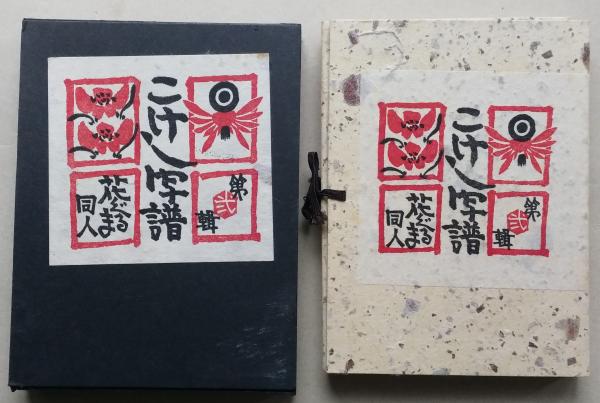 第弐輯
こけし写譜
花ぐるま
同人
第弐輯
こけし写譜
花ぐるま
同人